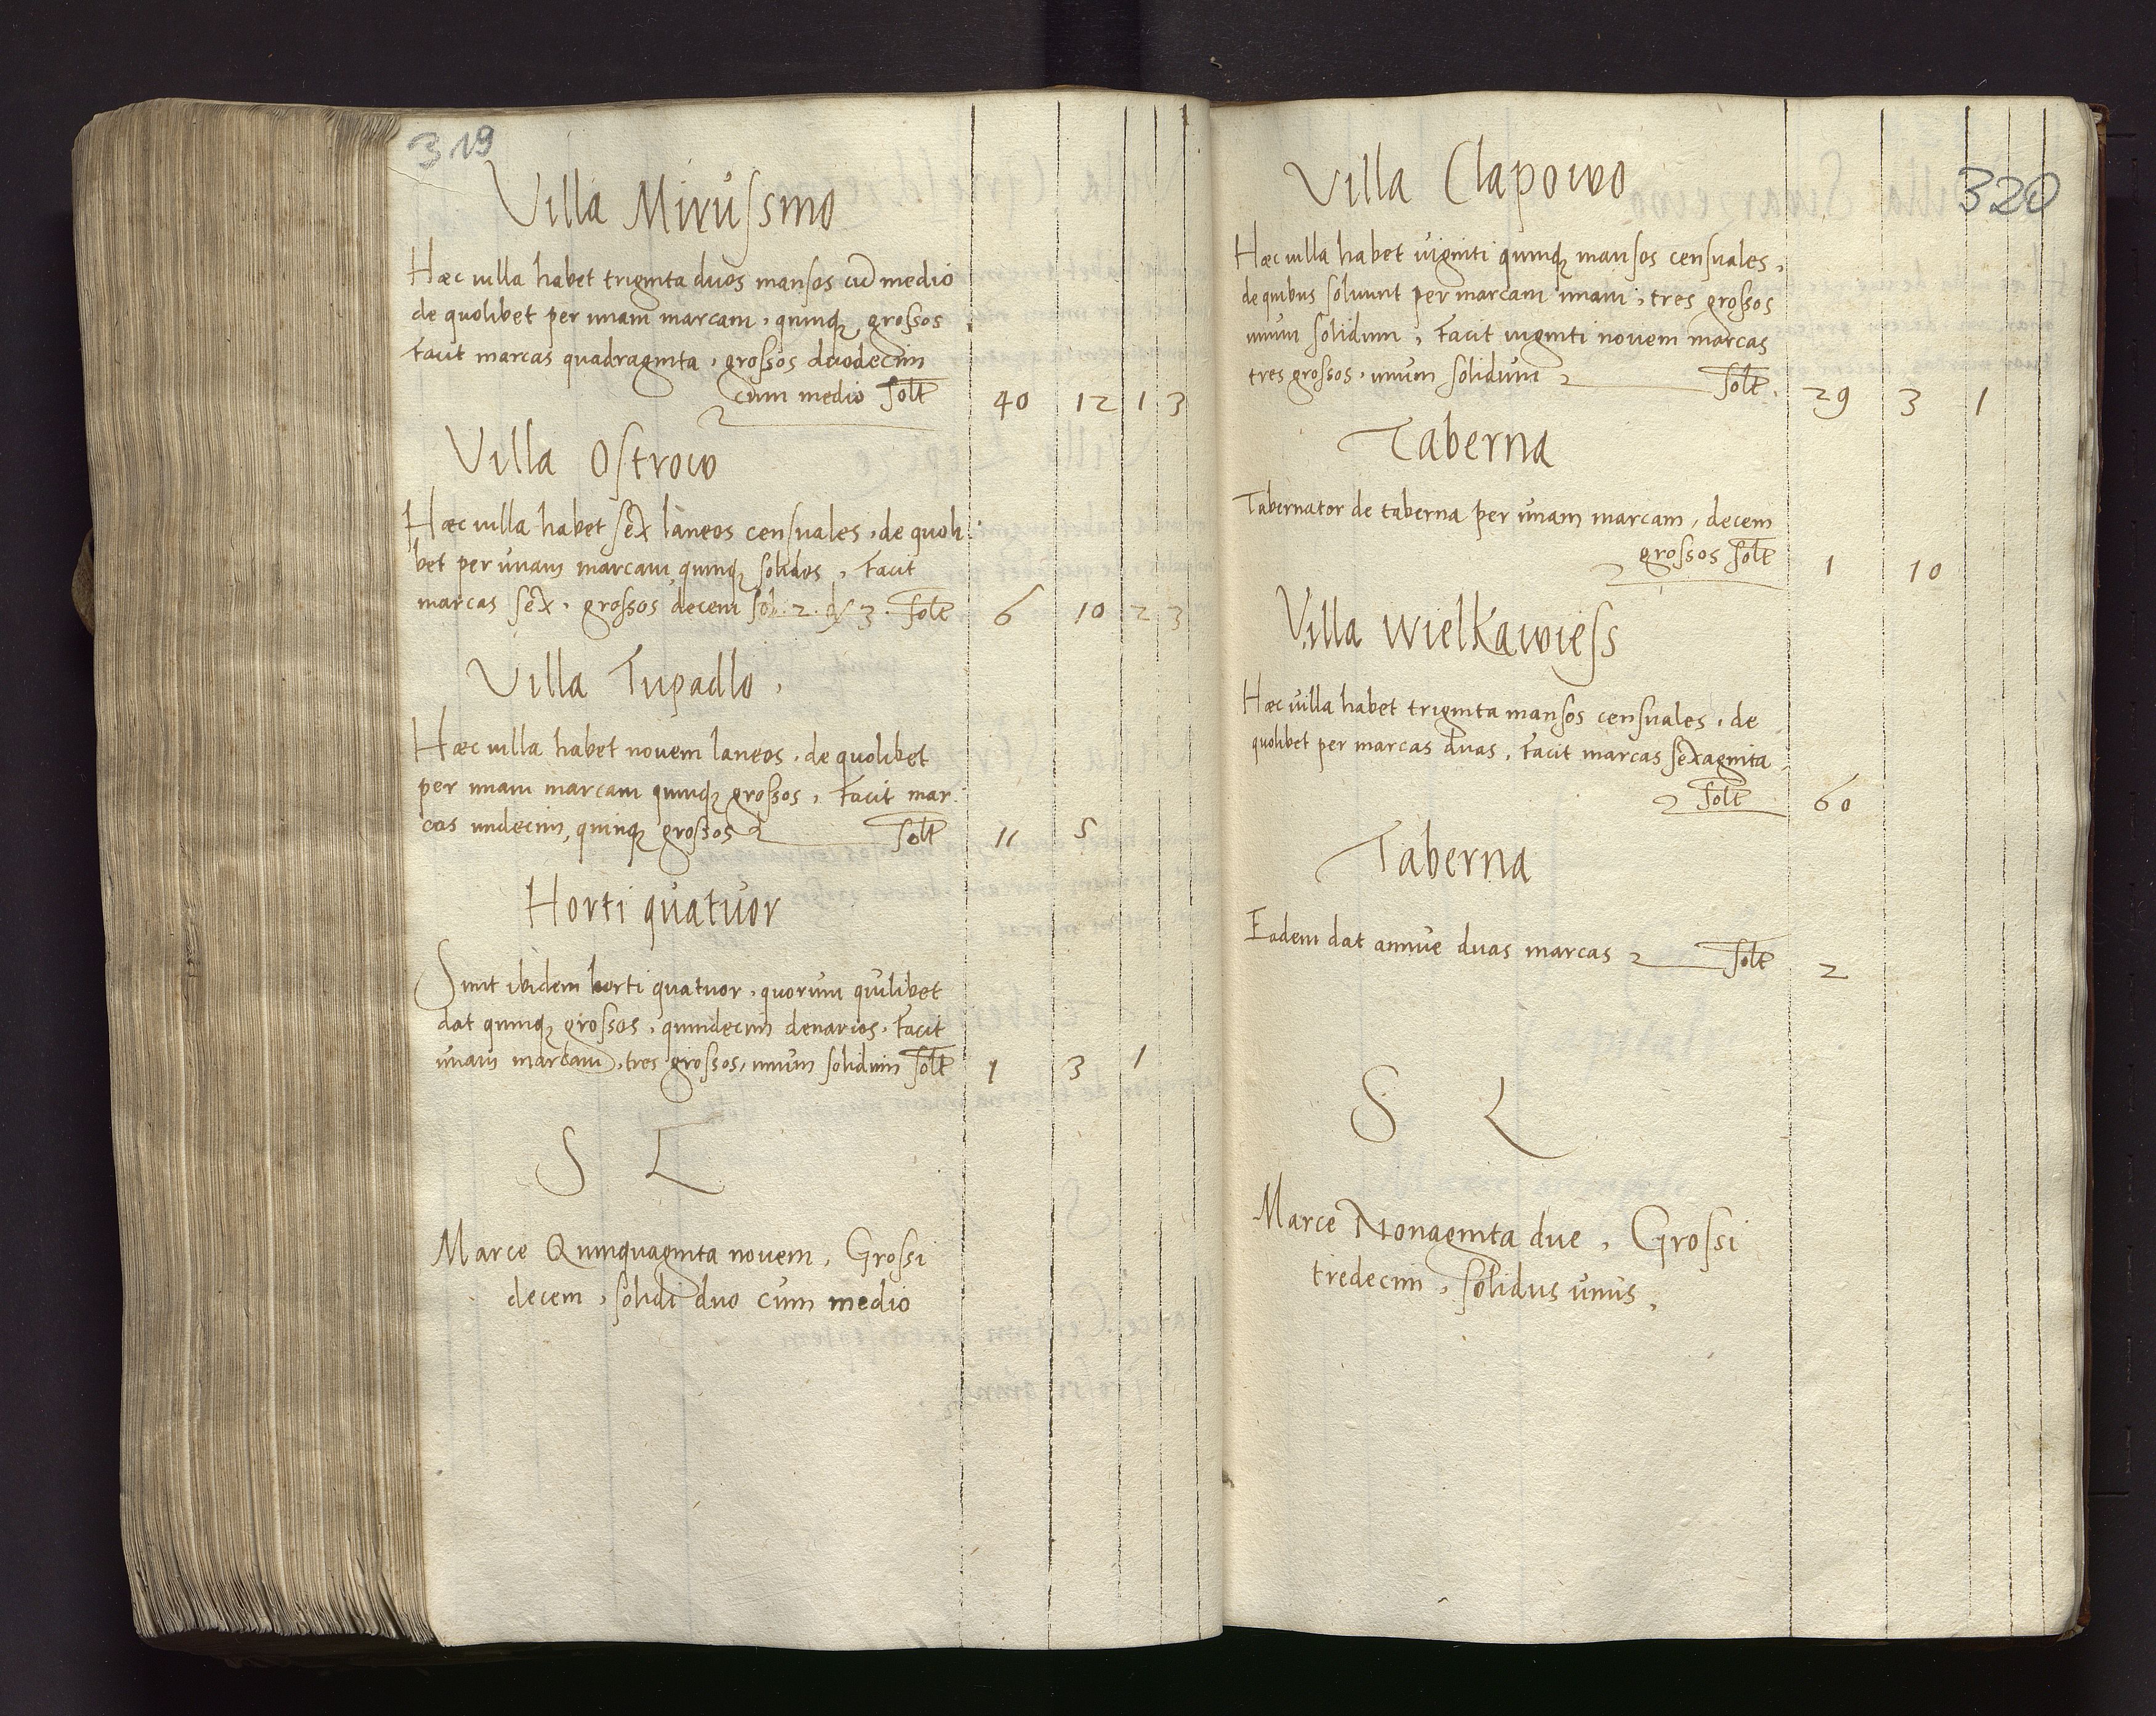 319
Villa Mirussmo
Hæc uilla habet triginta duos mansos cu̅ medio
de quolibet per unam marcam, quinq; grossos
Facit marcas quadraginta, grossos duodecim
cum medio solt 40 12 1 3
Villa Ostrow
Hæc uilla habet sex laneos censuales, de quoli
bet per unam marcam, quinq; solidos, Facit
marcas sex, grossos decem sol. 2. đ 3. solt 6 10 2 3
Villa Tupadlo,
Hæc uilla habet novem laneos, de quolibet
per unam marcam quinq; grossos, Facit mar
cas undecim, quinq; grossos solt 11 5
Horti quatuor
Sunt ibidem horti quatuor, quorum quilibet
dat quinq; grossos, quindecim denarios, Facit
unam marcam, tres grossos, unum solidum solt 1 3 1
S L
Marce Quinquaginta novem, Grossi
decem, solidi duo cum medio
320
Villa Clapowo
Hæc uilla habet viginiti quinq; mansos censuales,
de quibus soluunt per marcam unam, tres grossos
unum solidum, Facit viginti novem marcas
tres grossos, unum solidum solt. 29 3 1
Taberna
Tabernator de taberna per unam marcam, decem
grossos solt 1 10
Villa Wielkawiess
Hæc uilla habet triginta mansos censuales, de
quolibet per marcas duas, Facit marcas sexaginta
solt 60
Taberna
Eadem dat annue duas marcas solt 2
S L
Marce Nonaginta due, Grossi
tredecim, solidus unus,